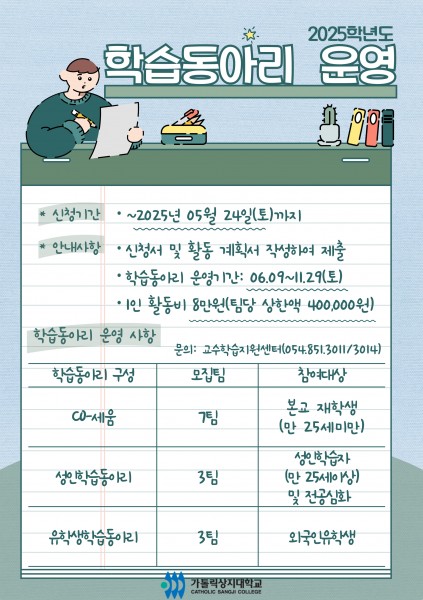 2025학년도
학습동아리 운영
* 신청기간 · ~2025년 05월 24일(토)까지
* 안내사항 · 신청서 및 활동 계획서 작성하여 제출
· 학습동아리 운영기간: 06.09~11.29(토)
· 1인 활동비 8만원(팀당 상한액 400,000원)
학습동아리 운영 사항
문의: 교수학습지원센터(054.851.3011/3014)
학습동아리 구성 모집팀 참여대상
CO-세움 7팀 본교 재학생
(만 25세미만)
성인학습동아리 3팀 성인학습자
(만 25세이상)
및 전공심화
유학생학습동아리 3팀 외국인유학생
가톨릭상지대학교
CATHOLIC SANGJI COLLEGE